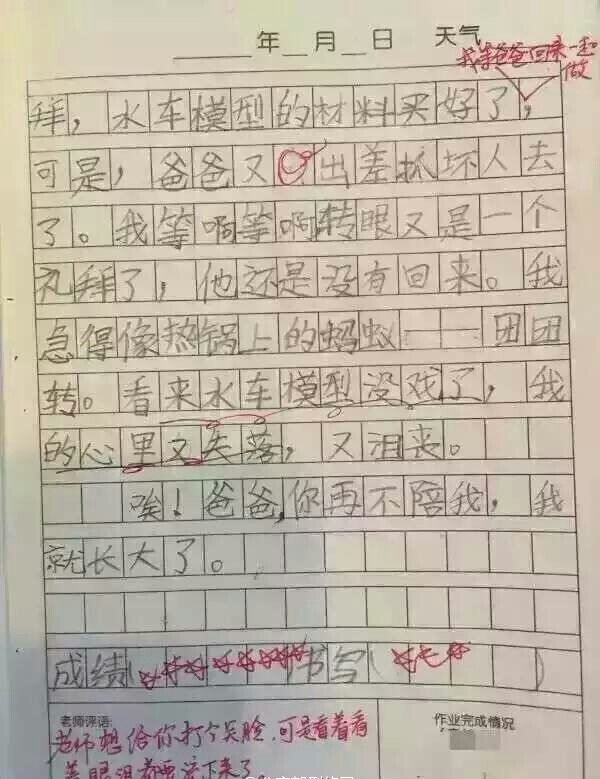 年 月 日 天气
我等爸爸回来一起做
拜，水车模型的材料买好了，
可是，爸爸又出差抓坏人去
了。我等啊等啊转眼又是一个
礼拜了，他还是没有回来。我
急得像热锅上的蚂蚁——团团
转。看来水车模型没戏了，我
的心里又失落，又沮丧。
唉！爸爸，你再不陪我，我
就长大了。
成绩( 书写( )
老师评语: 作业完成情况
老师想给你打个笑脸，可是看着看
着眼泪都要流下来了